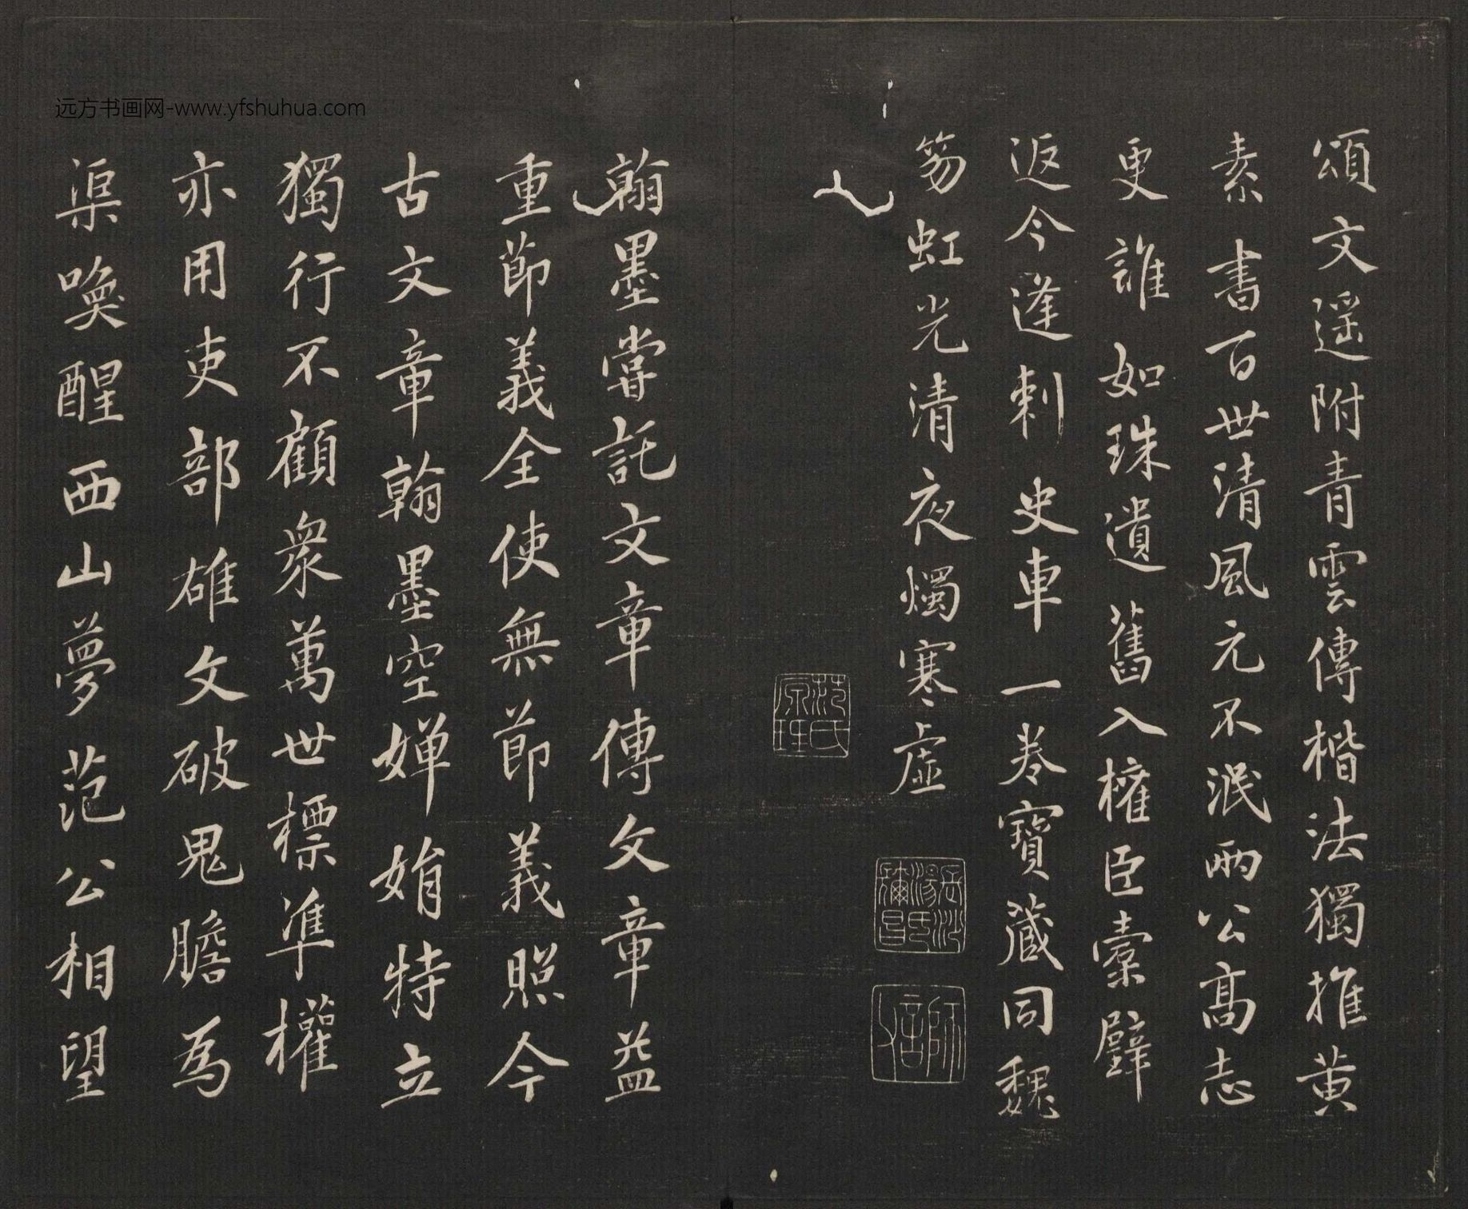 远方书画网-www.yfshuhua.com
頌文遥附青雲傳楷法獨推黄
素書百世清風元不泯兩公高志
更誰如珠遺舊入權臣橐璧
返今逢刺史車一卷寶蔵同魏
笏虹光清夜燭寒虚
范氏
翰墨嘗託文章傳文章益
重莭義全使無莭義照今
古文章翰墨空嬋娟特立
獨行不顧衆萬世標準權
亦用吏部雄文破鬼膽為
渠喚醒西山夢范公相望